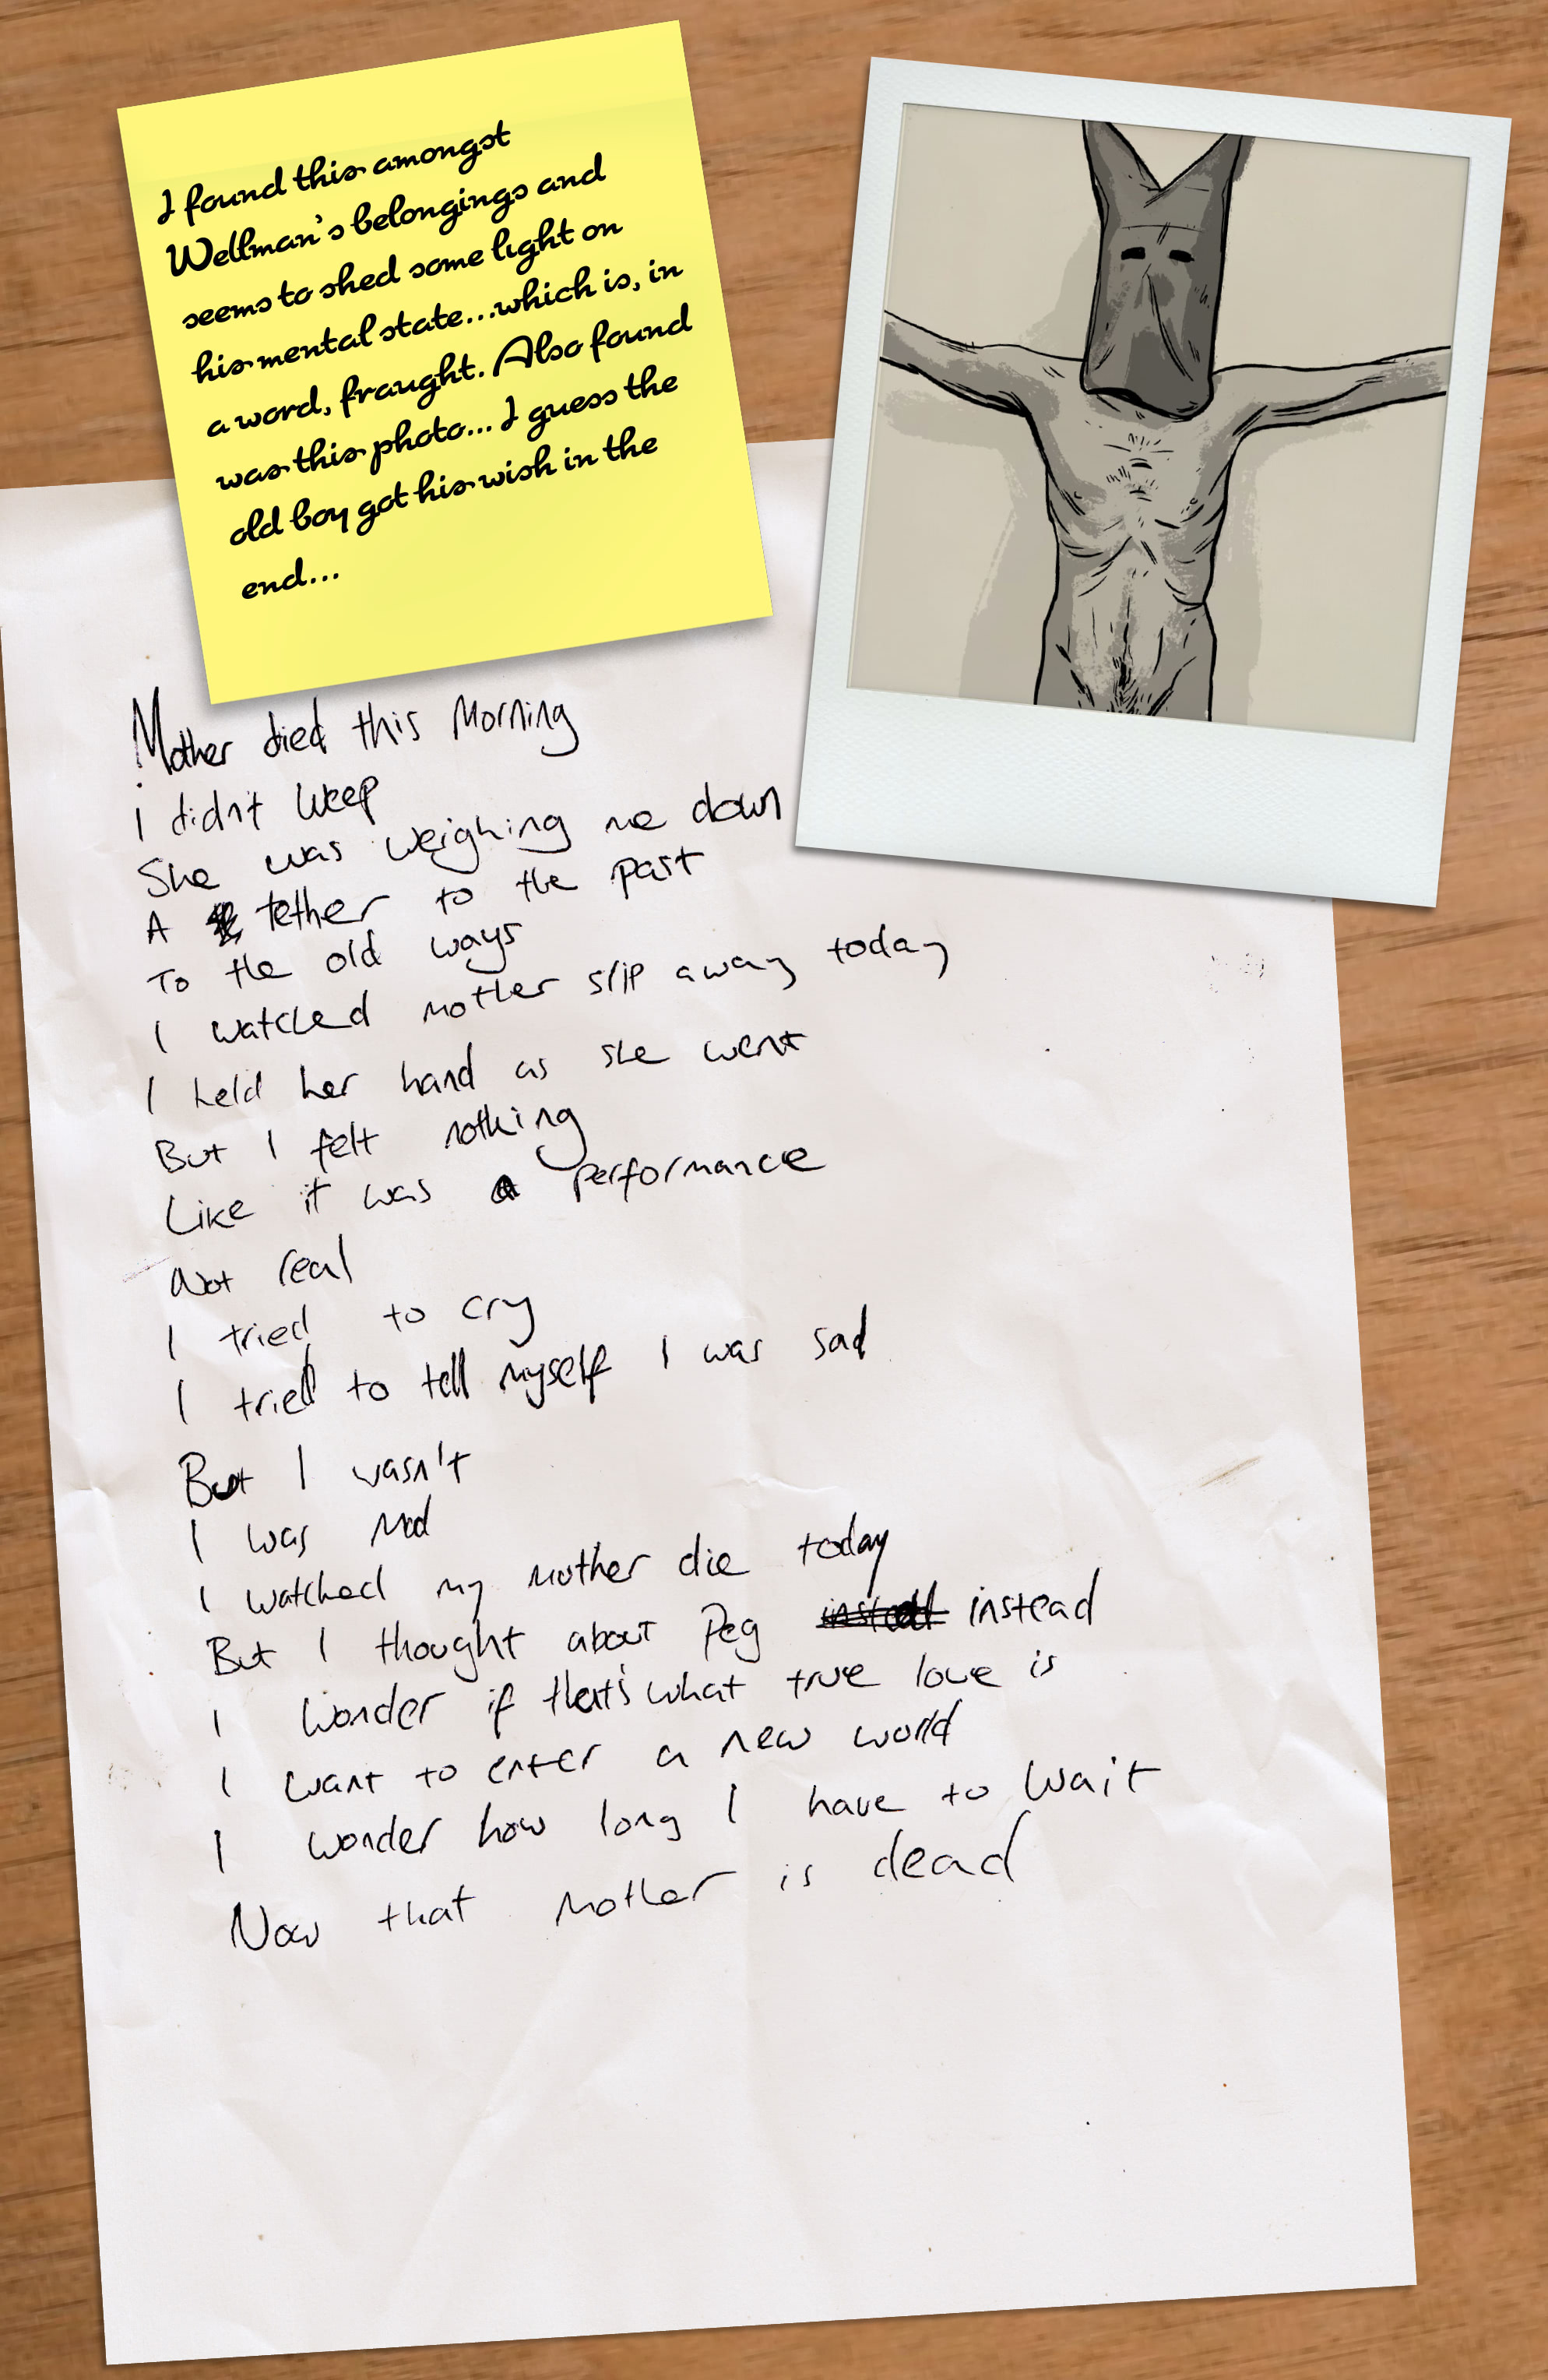 I found this amongst
Wellman's belongings and
seems to shed some light on
his mental state...which is, in
a word, fraught. Also found
was this photo... I guess the
old boy got his wish in the
end...
Mother died this Morning
i didn't weep
She was weighing me down
A tether to the past
To the old ways
I watched mother slip away today
I held her hand as she went
But I felt nothing
Like it was a performance
Not real
I tried to cry
I tried to tell myself I was sad
But I wasn't
I was Mad
I watched my mother die today
But I thought about Peg instead instead
I wonder if that's what true love is
I want to enter a new world
I wonder how long I have to wait
Now that Mother is dead